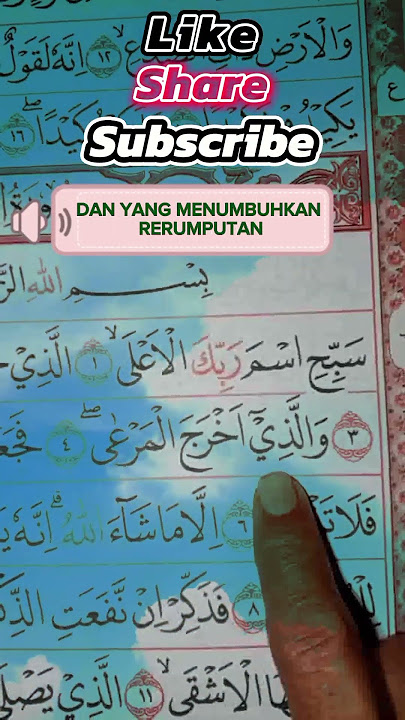 Like
Share
Subscribe
وَالْاَرْضِ ١٢ اِنَّهٗ لَقَوْلٌ
ع
يَكِيْدُ كَيْدًا ۖ ١٦
DAN YANG MENUMBUHKAN
RERUMPUTAN
بِسْمِ اللّٰهِ
سَبِّحِ اسْمَ رَبِّكَ الْاَعْلَىۙ ١ الَّذِيْ
٣ وَالَّذِيْٓ اَخْرَجَ الْمَرْعٰىۖ ٤
اِلَّا مَا شَاۤءَ اللّٰهُ ۗ اِنَّهٗ ٦
٨ فَذَكِّرْ اِنْ نَّفَعَتِ
الْاَشْقَىۙ ١١ الَّذِيْ يَصْلَى